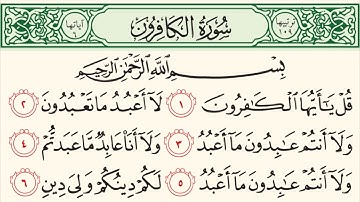 ترتيبها ١٠٩ سُورَةُ الْكَافِرُونَ آياتها
بِسْمِ ٱللَّهِ ٱلرَّحْمَٰنِ ٱلرَّحِيمِ
قُلْ يَٰٓأَيُّهَا ٱلْكَٰفِرُونَ ١ لَآ أَعْبُدُ مَا تَعْبُدُونَ ٢
وَلَآ أَنتُمْ عَٰبِدُونَ مَآ أَعْبُدُ ٣ وَلَآ أَنَا۠ عَابِدٌ مَّا عَبَدتُّمْ ٤
وَلَآ أَنتُمْ عَٰبِدُونَ مَآ أَعْبُدُ ٥ لَكُمْ دِينُكُمْ وَلِىَ دِينِ ٦